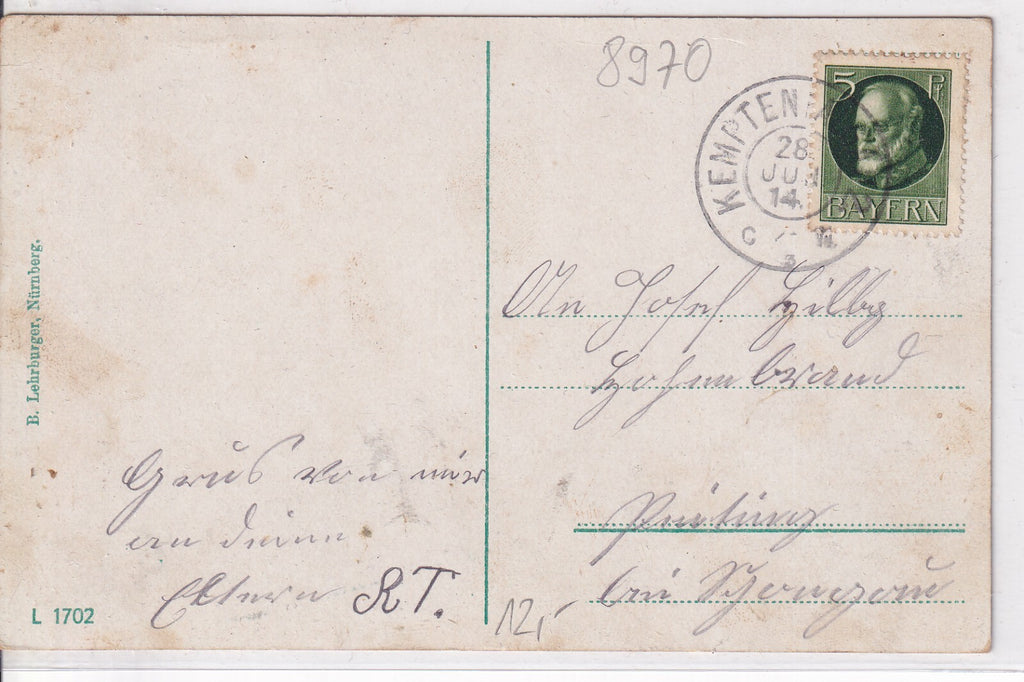 8970
5 Pf
BAYERN
KEMPTEN
28
JUN
14.
B. Lehrburger, Nürnberg.
An Josef Hilbg
Hohenbrand
bei Schongau
Grus von mir
an deine
Eltern RT.
L 1702
12,-